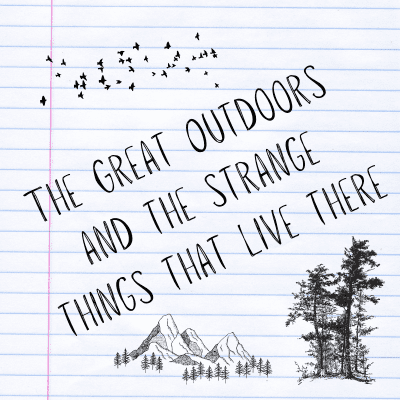 THE GREAT OUTDOORS
AND THE STRANGE
THINGS THAT LIVE THERE